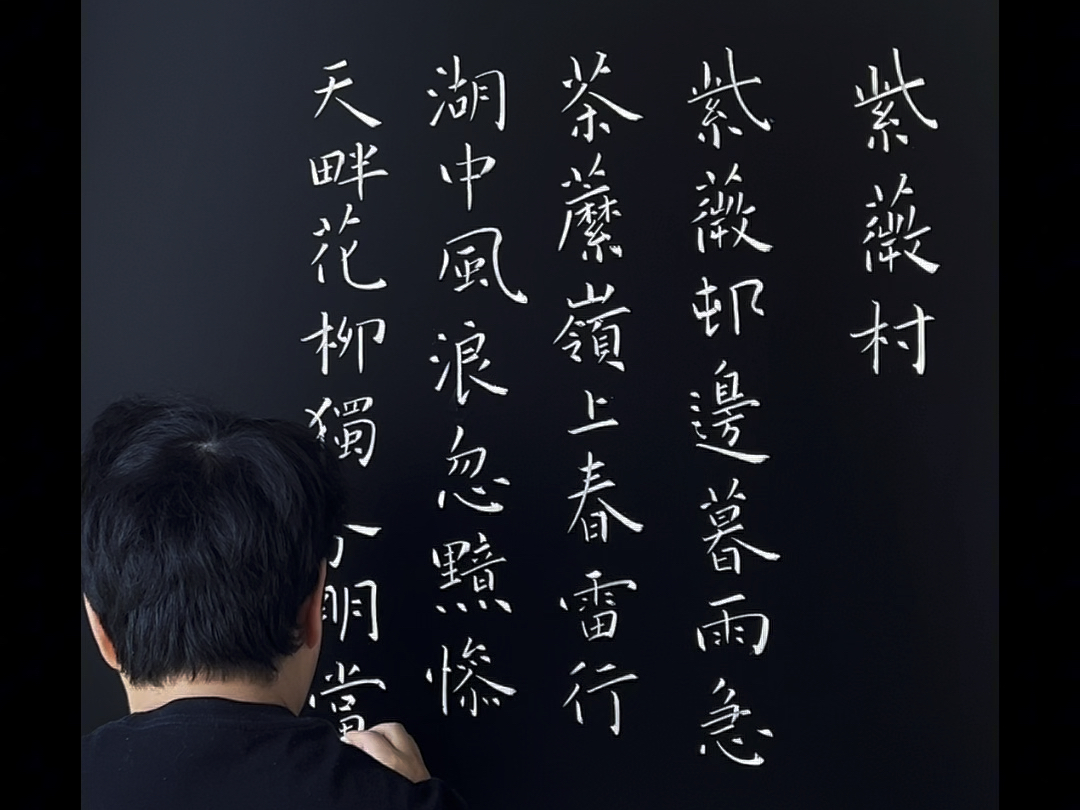 紫薇村
紫薇邨邊暮雨急
茶蘼嶺上春雷行
湖中風浪忽黯慘
天畔花柳獨分明當